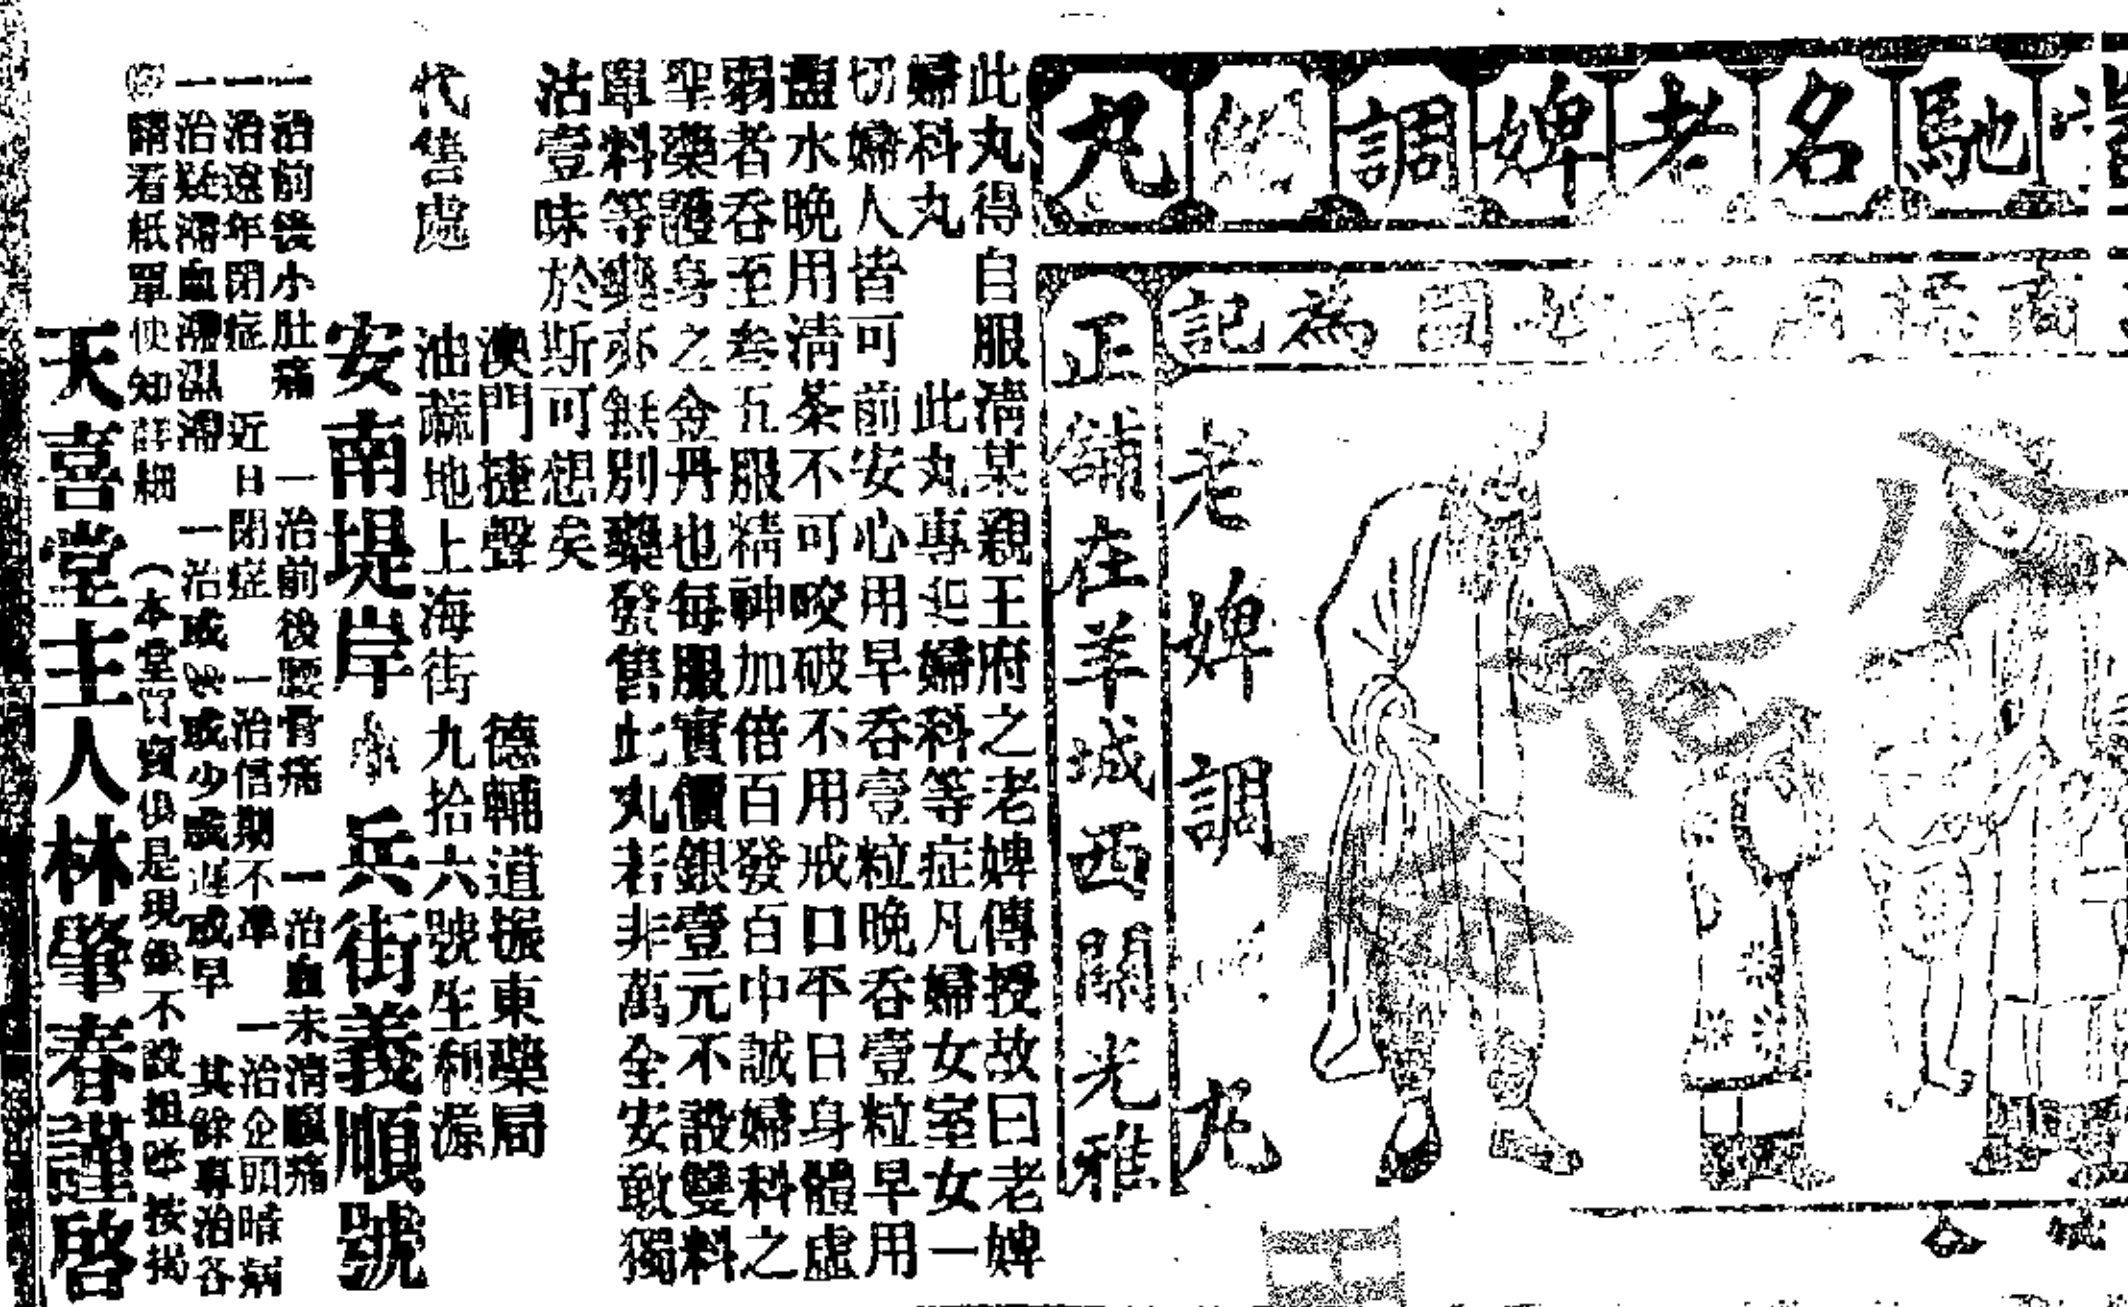 馳名老婢調經丸
商標用老婢圖為記
老婢調經丸
正舖在羊城西關光雅
此丸得自服清某親王府之老婢傳授故曰老婢
婦科丸 此丸專理婦科等症凡婦女室女一
切婦人皆可前安心用早吞壹粒晚吞壹粒早用
鹽水晚用清茶不可咬破不用戒口平日身體虛
弱者吞至叁五服精神加倍百發百中誠婦科之
聖藥護身之金丹也每服實價銀壹元不設雙料
單料等藥亦無別藥發售此丸若非萬全安敢獨
沽壹味於斯可想矣
代售處
澳門捷聲 德輔道振東藥局
油蔴地上海街九拾六號生利源
安南堤岸 兵街義順號
一治前後小肚痛 一治前後腰骨痛 一治血未清腹痛
一治遠年閉症 近日閉症 一治信期不準 一治企頭暗病
一治疑濁血濁濕濁 一治或 或少或遲或早 其餘專治各
請看紙單便知詳細 (本堂 是現銀不設 按揭
天喜堂主人林肇春謹啓